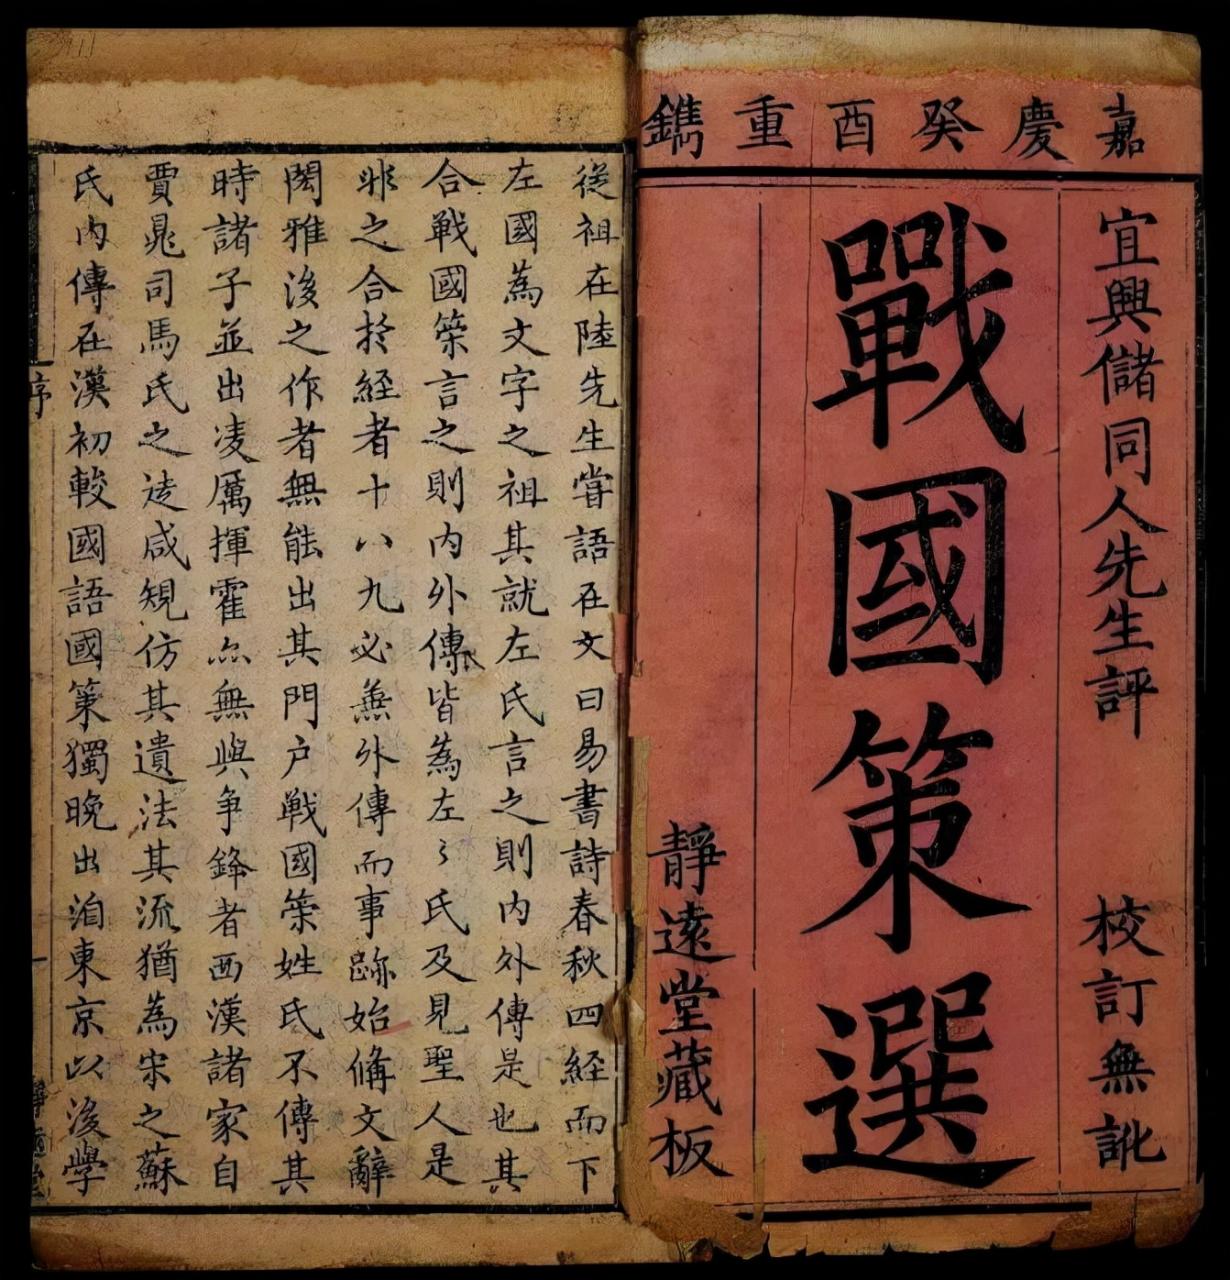 嘉慶癸酉重鐫
宜興儲同人先生評 校訂無訛
戰國策選
靜遠堂藏板
從祖在陸先生嘗語在文曰易書詩春秋四經而下
左國為文字之祖其就左氏言之則内外傳是也其
合戰國筞言之則内外傳皆為左〻氏及見聖人是
非之合於經者十八九必兼外傳而事跡始備文辭
閎雅後之作者無能出其門户戰國筞姓氏不傳其
時諸子並出凌厲揮霍亦無與争鋒者西漢諸家自
賈晁司馬氏之徒咸規仿其遺法其流猶為宋之蘇
氏内傳在漢初較國語國策獨晚出洎東京以後學
序 一